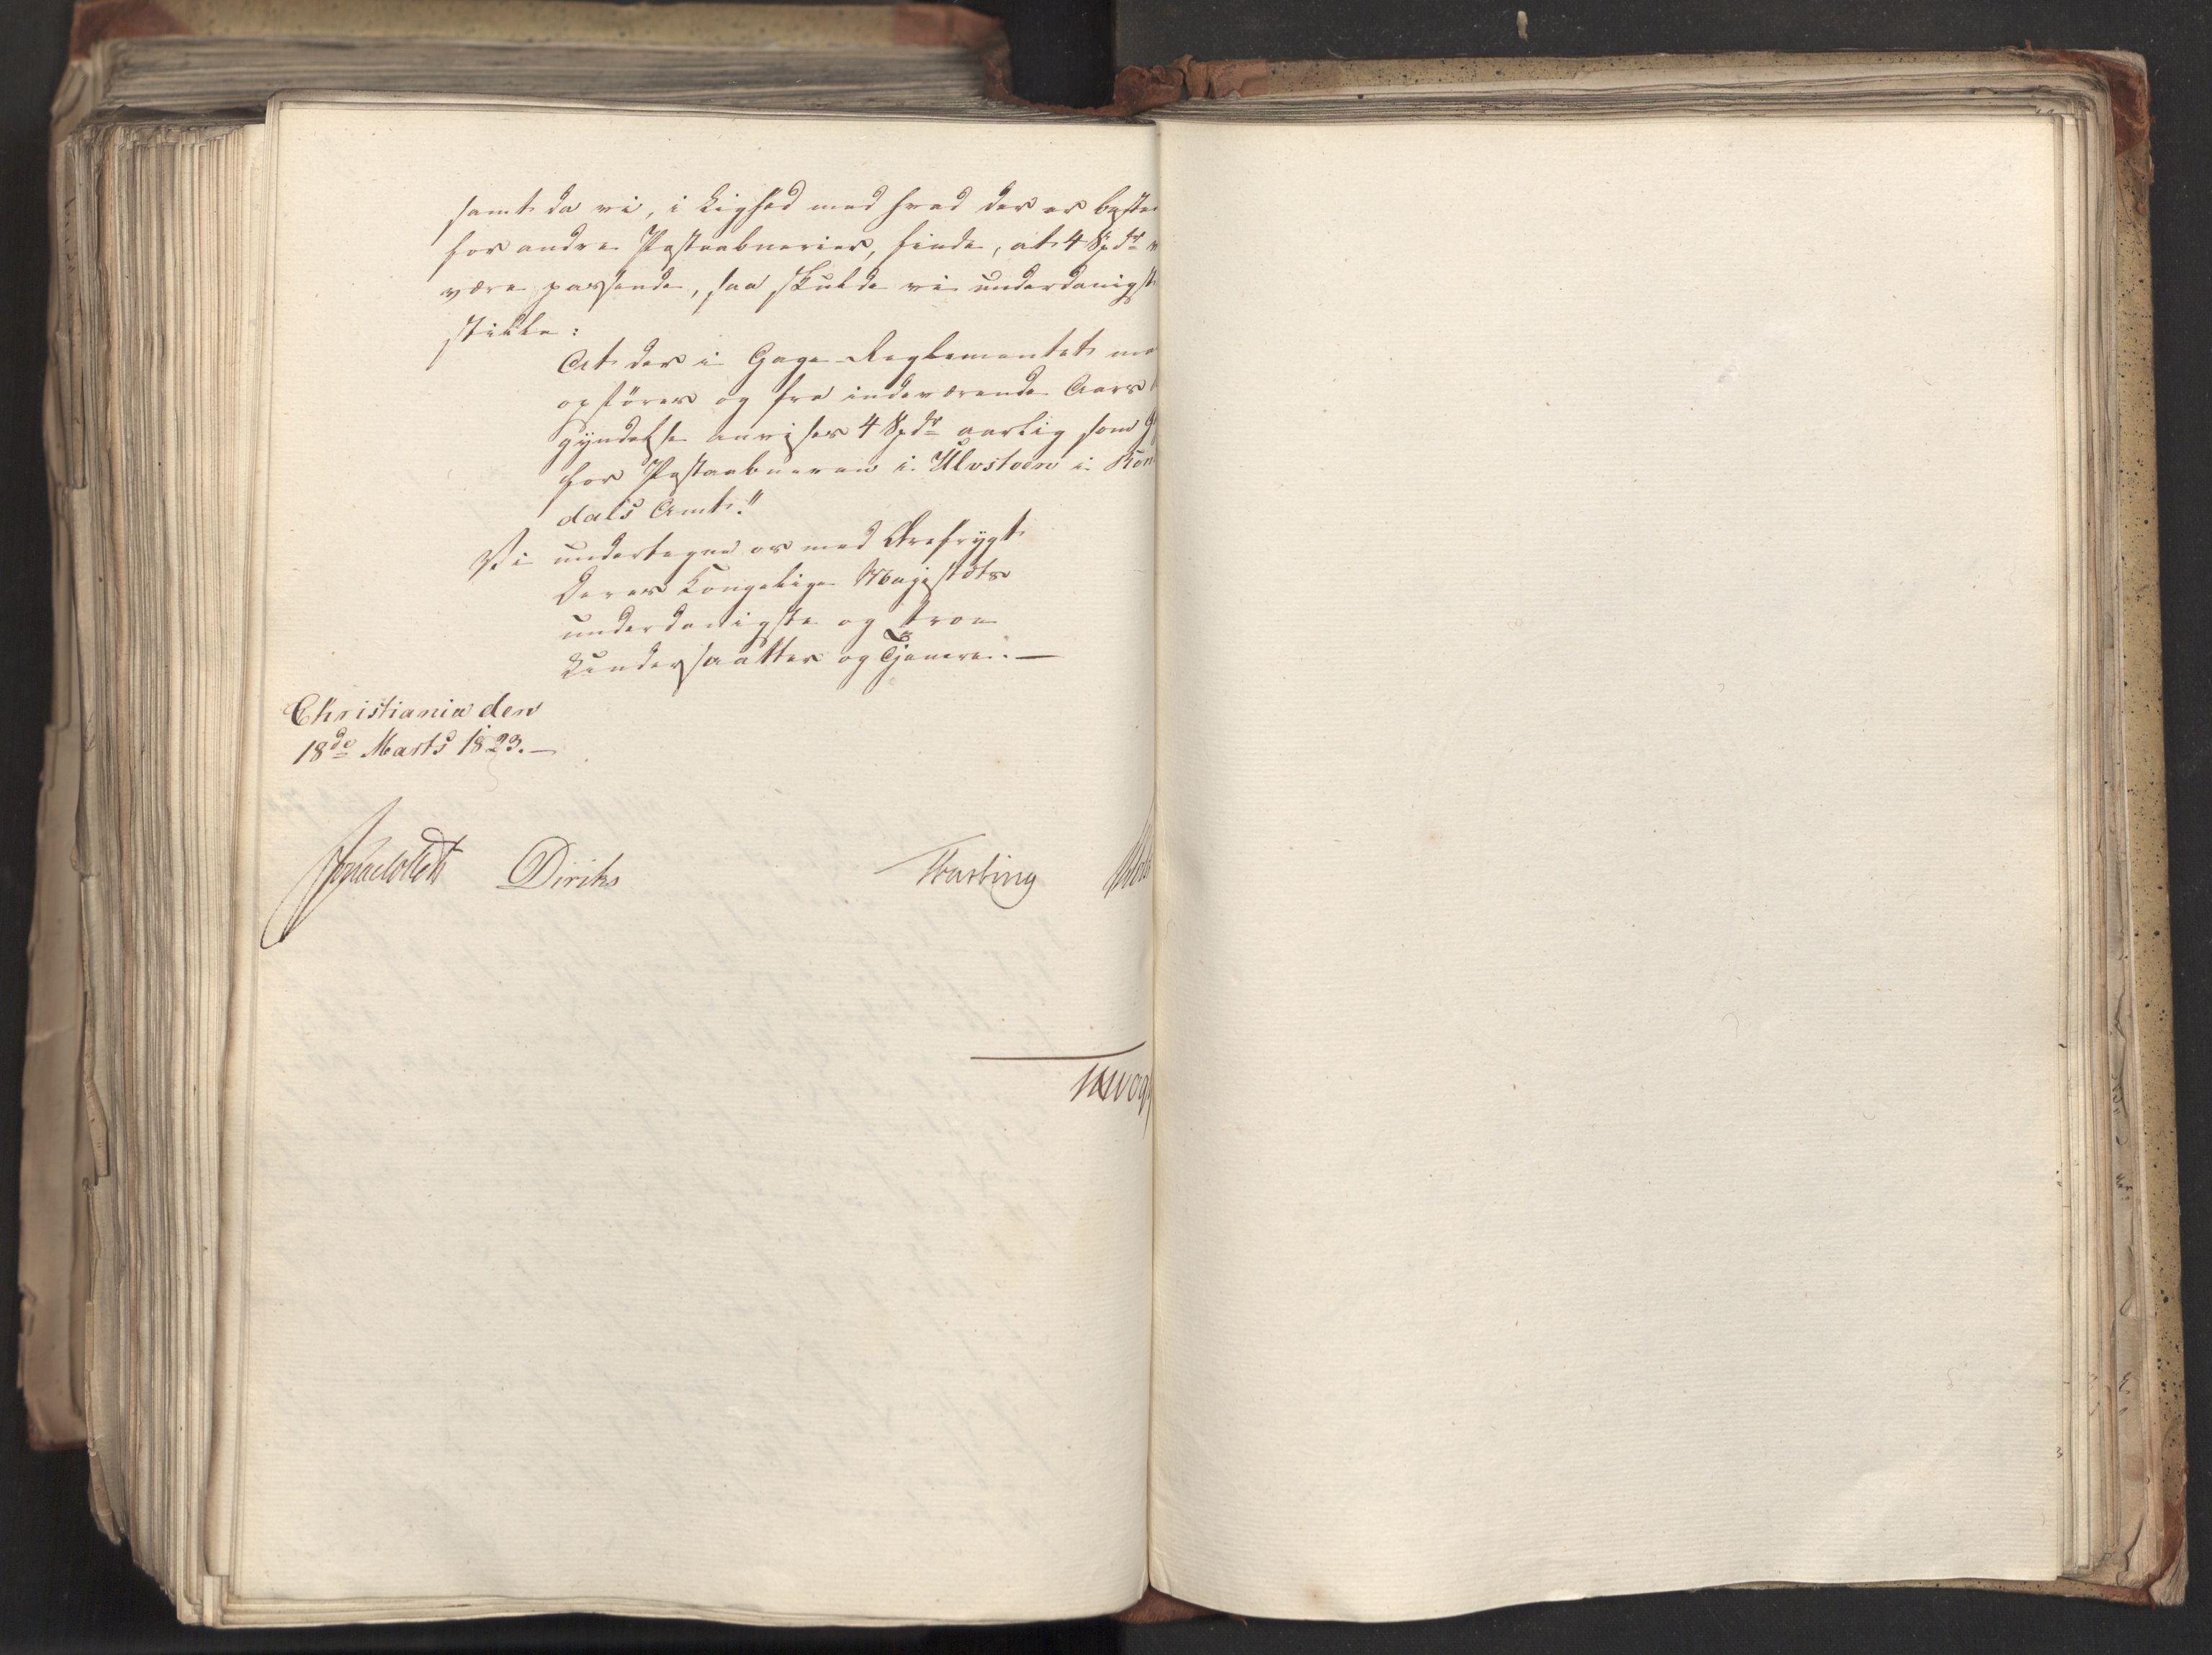 samt da vi, i Lighed med hvad der er beste
for andre Postaabnerier, finde, at 4 Spdr
være passende, saa skulde vi underdanigst
stille:
At der i Gage-Reglementet maa
opføres og fra indeværende Aars
gyndelse anvises 4 Spdr aarlig som G
for Postaabneren i Ulvstoen i Rom
dals Amt."
Vi undertegne os med Ærefrygt
Deres Kongelige Majestæts
underdanigste og troe
Undersaatter og Tjenere. —
Christiania den
18de Marts 1823. —
Jonas Collett Diriks Krebs?